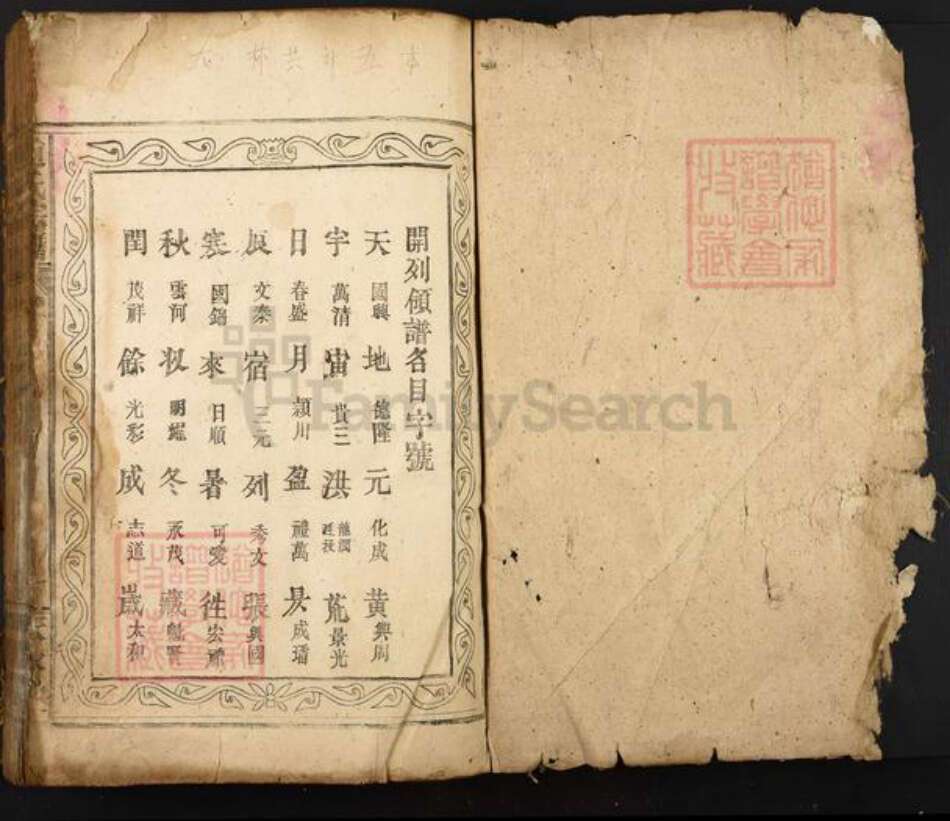 開列領譜各目字號
天 國興 地 德隆 元 化成 黃 興周
宇 萬清 宙 貴三 洪 荒 景光
日 春盛 月 穎川 盈 禮萬 昃 成璠
辰 文泰 宿 三元 列 秀文 張 興國
寒 國錦 來 日順 暑 可愛 往 宏
秋 雲河 收 明耀 冬 永茂 藏
閏 茂祥 餘 光彩 成 志道 歲 太和
本五廿共 九
譜學會
收藏
FamilySearch